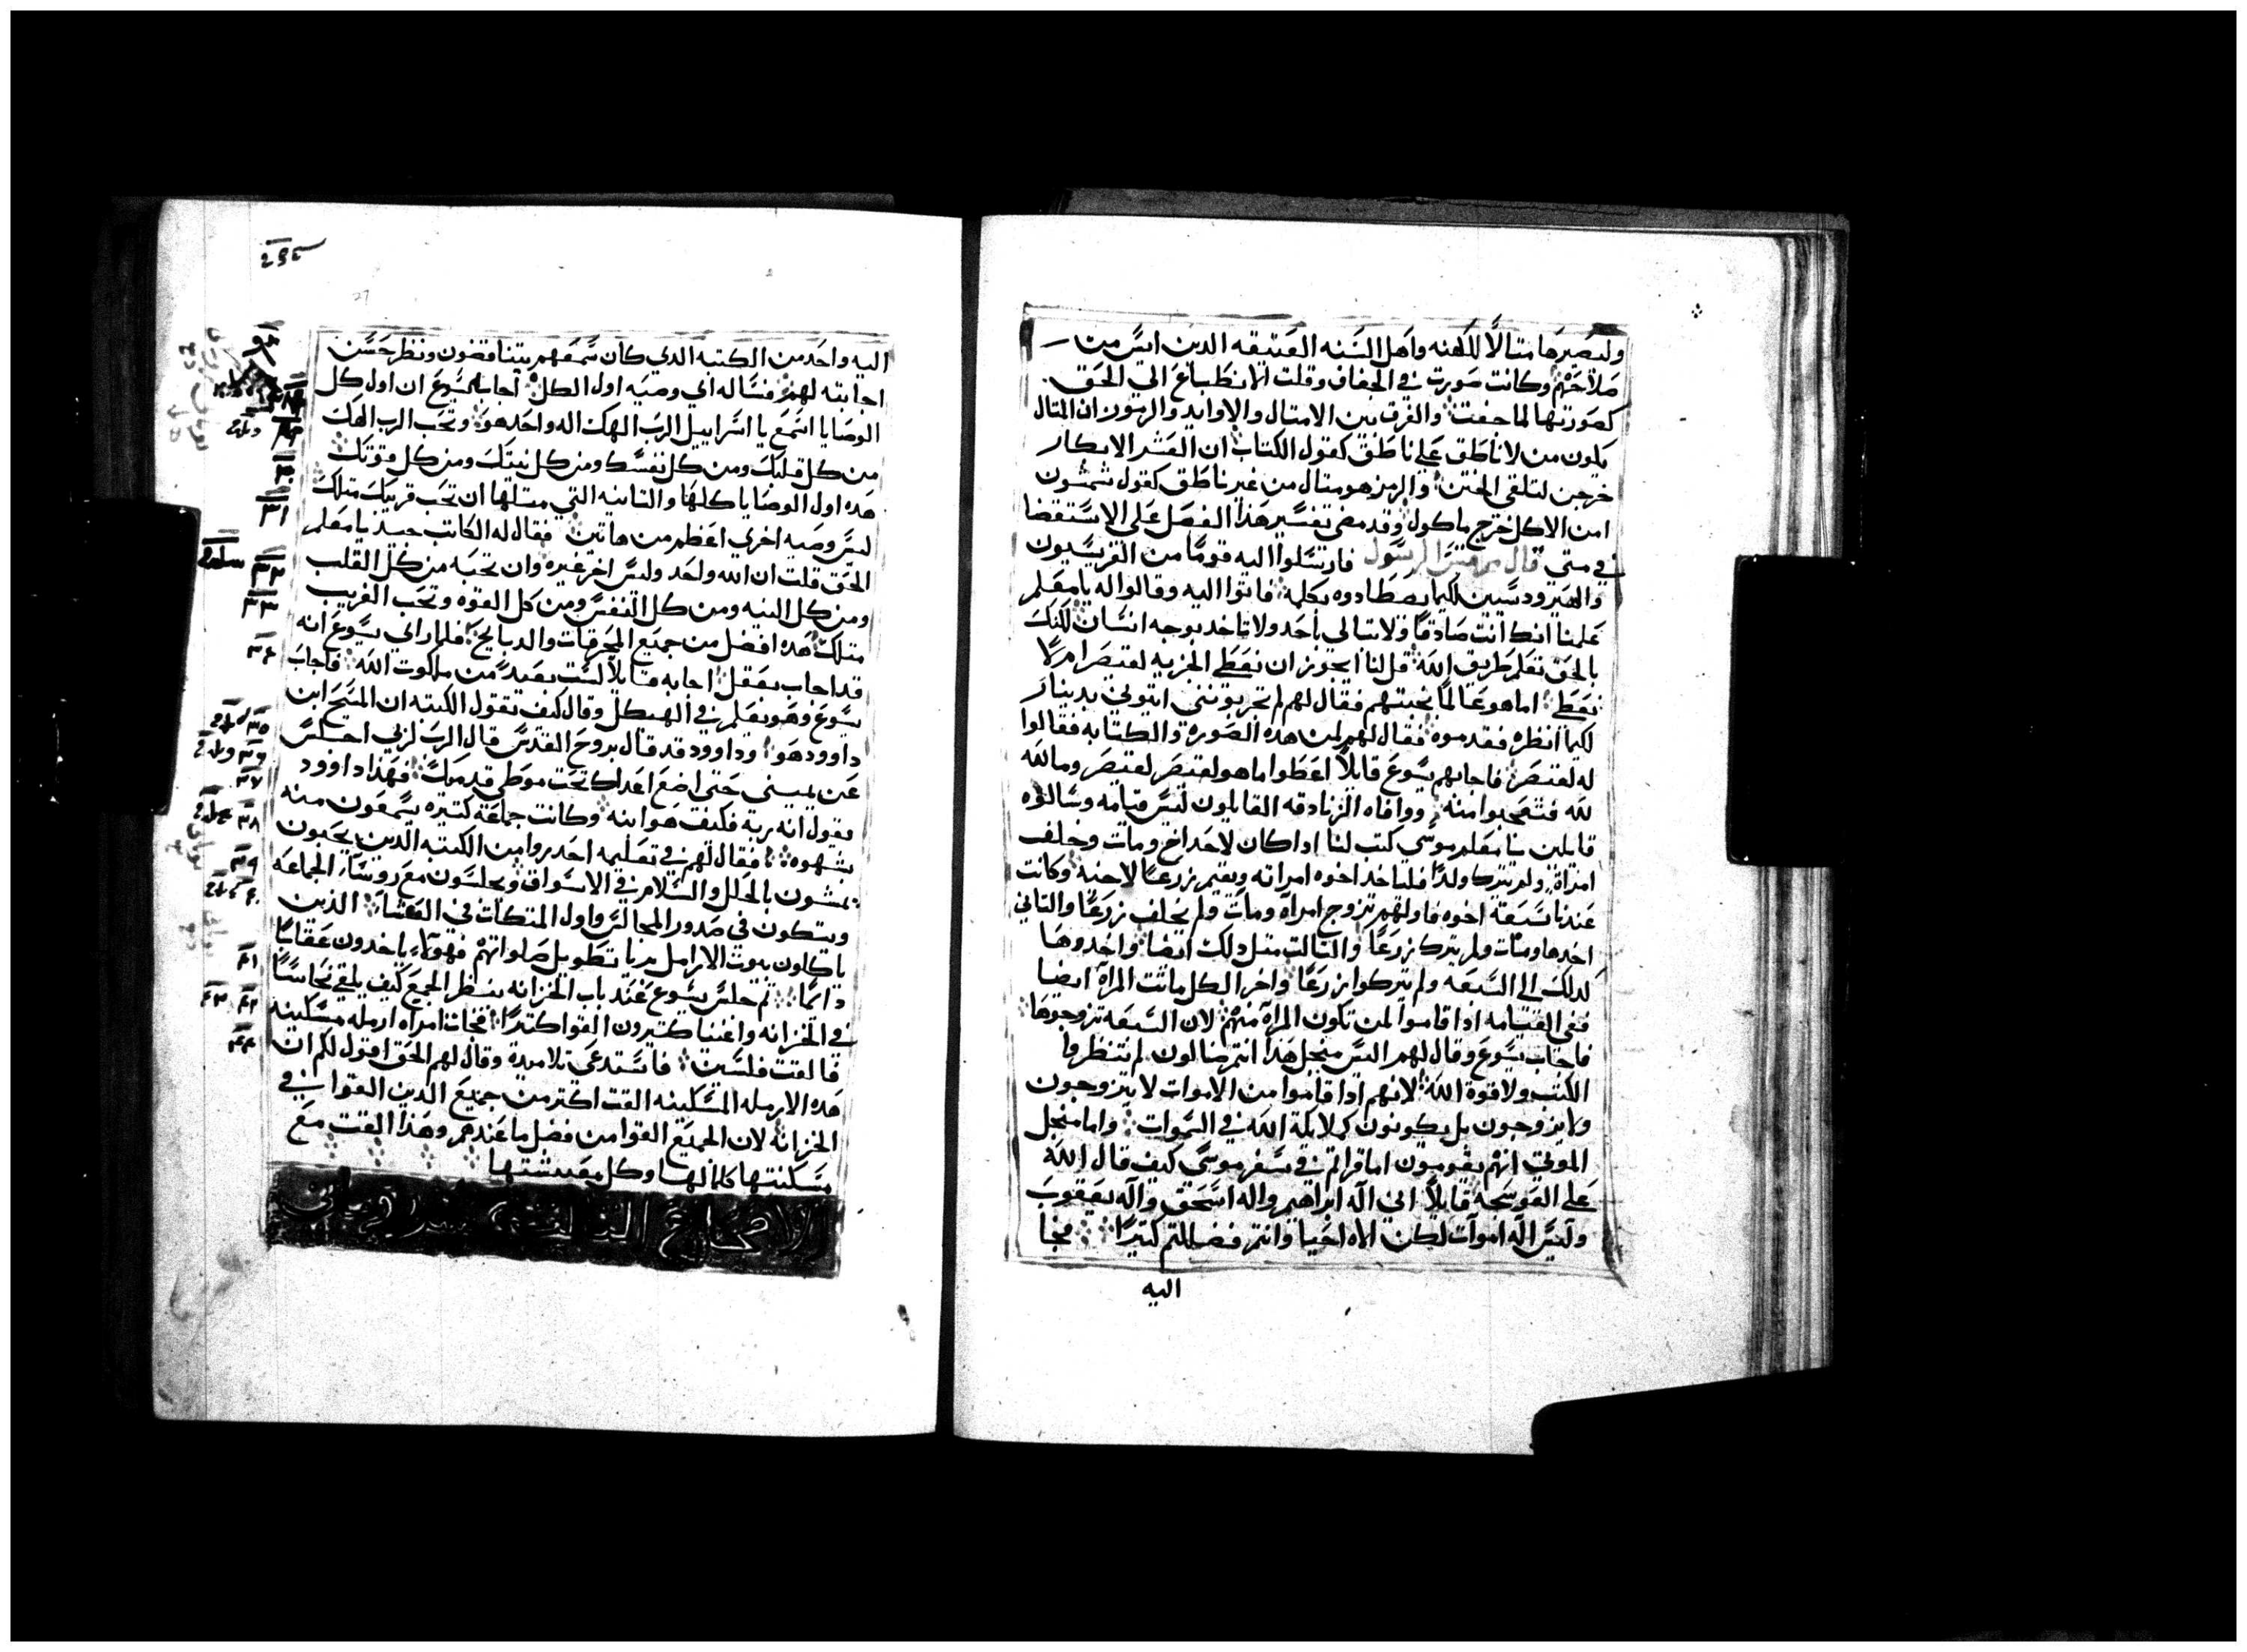 وليصيرها متالًا للكهنه واهل السنه العتيقه الدين ايس من
صلاحهم وكانت صورت في الجفاف وقلت الانطباع الي الحق
كصورتها لما جفت والفرق بين الامتال والاوابد والرموز ان المتال
يكون من لا ناطق علي ناطق كقول الكتاب ان العشر الابكار
خرجن لتلقي الختن والرمز هو متال من غير ناطق كقول شمشون
امن الاكل خرج ماكول وقد مضي تفسير هذا الفصل علي الاستقضا
في متي قال مرقس الرسول فارتسلوا اليه قومًا من الفريسيون
والهيرودسيين لكيما يصطادوه بكلمه فاتوا اليه وقالوا له يا معلم
علمنا انك انت صادقًا ولا تبالي باحد ولا تاخد بوجه انسان لكنك
بالحق تعلم طريق الله قل لنا ايجوز ان نعطي الجزيه لقيصر ام لا
نعطي اما هو عالمًا بخبتهم فقال لهم لم تجربونني ايتوني بدينار
لكيما انظره فقدموه فقال لهم لمن هده الصوره والكتابه فقالوا
له لقيصر فاجابهم يسوع قايلًا اعطوا ما هو لقيصر لقيصر وما لله
لله فتعجبوا منه ووافاه الزنادقه القايلون ليس قيامه وسالوه
قايلين يا معلم موسي كتب لنا اداكان لاحد اخ ومات وخلف
امراة ولم يترك ولدًا فلياخد اخوه امراته ويقيم زرعًا لاخيه وكانت
عندنا سبعة اخوه فاولهم تزوج امراه ومات ولم يخلف زرعًا والتاني
اخدها ومات ولم يترك زرعًا والتالت متل دلك ايضا واخدوها
كدلك الي السبعه ولم يتركوا زرعًا واخر الكل ماتت المراة ايضا
ففي القيامه ادا قاموا لمن تكون المراة منهم لان السبعه تزوجوها
فاجاب يسوع وقال لهم اليس منجل هدا انتم ضالون لم تنظروا
الكتب ولا قوة الله لانهم ادا قاموا من الاموات لا يتزوجون
ولا يزوجون بل يكونون كملايكة الله في السموات واما منجل
الموتي انهم يقومون اما قراتم في سفر موسي كيف قال الله
علي العوسجه قايلًا اني اله ابراهيم واله اسحق واله يعقوب
وليس اله اموات لكن الاه احيا وانتم فضللتم كتيرًا فجا
اليه
اليه واحد من الكتبه الدي كان سمعهم يتناقضون ونظر حسن
اجابته لهم فساله اي وصيه اول الكل اجابه يسوع ان اول كل
الوصايا اسمع يا اسراييل الرب الهك اله واحد هو وتحب الرب الهك
من كل قلبك ومن كل نفسك ومن كل نيتك ومن كل قوتك
هده اول الوصايا كلها والتانيه التي متلها ان تحب قريبك متلك
ليس وصيه اخري اعظم من هاتين فقال له الكاتب جيد يا معلم
الحق قلت ان الله واحد وليس اخر غيره وان تحبه من كل القلب
ومن كل النيه ومن كل النفس ومن كل القوه وتحب القريب
متلك هده افضل من جميع المحرقات والدبايح فلما راي يسوع انه
قد اجاب بعقل اجابه قايلًا لست بعيدًا من ملكوت الله فاجاب
يسوع وهو يعلم في الهيكل وقال كيف تقول الكتبه ان المسيح ابن
داوود هو وداوود قد قال بروح القدس قال الرب لربي اجلس
عن يميني حتي اضع اعداك تحت موطي قدميك فهذا داوود
يقول انه ربه فكيف هو ابنه وكانت جماعة كتيره يسمعون منه
بشهوه فقال لهم في تعليمه احدروا من الكتبه الدين يحبون
يمشون بالحلل والسلام في الاسواق ويجلسون مع روسا الجماعه
ويتكون في صدور المجالس واول المتكات في العشا الذين
ياكلون بيوت الارامل بريا تطويل صلواتهم فهولاء ياخدون عقابًا
دايمًا تم جلس يسوع عند باب الخزانه ينظر الجمع كيف يلقي نحاسًا
في الخزانه واغنيا كتيرون القوا كتيرًا فجات امراه ارمله مسكينه
فالقت فلسين فاستدعي تلاميده وقال لهم الحق اقول لكم ان
هده الارمله المسكينه القت اكتر من جميع الدين القوا في
الخزانه لان الجميع القوا من فضل ما عندهم وهذا القت مع
مسكنتها كلما لها وكل معيشتها